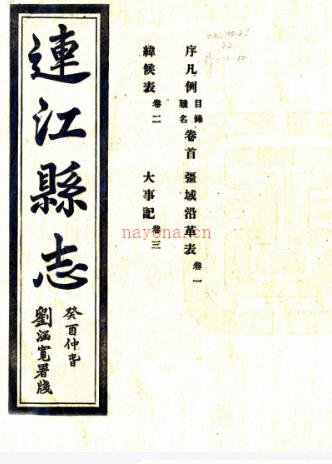 序凡例 目錄 職名 卷首 疆域沿革表 卷一
緯候表 卷二 大事記 卷三
連江縣志
癸酉仲旾
劉涵寬署牋
nayona.cn